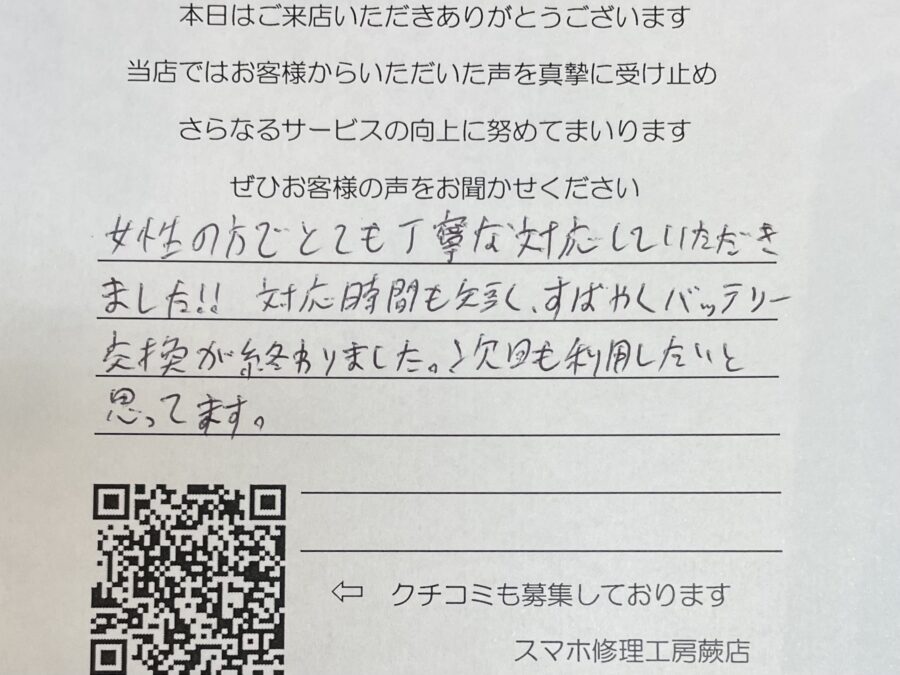 本日はご来店いただきありがとうございます
当店ではお客様からいただいた声を真摯に受け止め
さらなるサービスの向上に努めてまいります
ぜひお客様の声をお聞かせください
女性の方でとても丁寧な対応していただき
ました!! 対応時間も短く、すばやくバッテリー
交換が終わりました。次回も利用したいと
思ってます。
⇦ クチコミも募集しております
スマホ修理工房蕨店